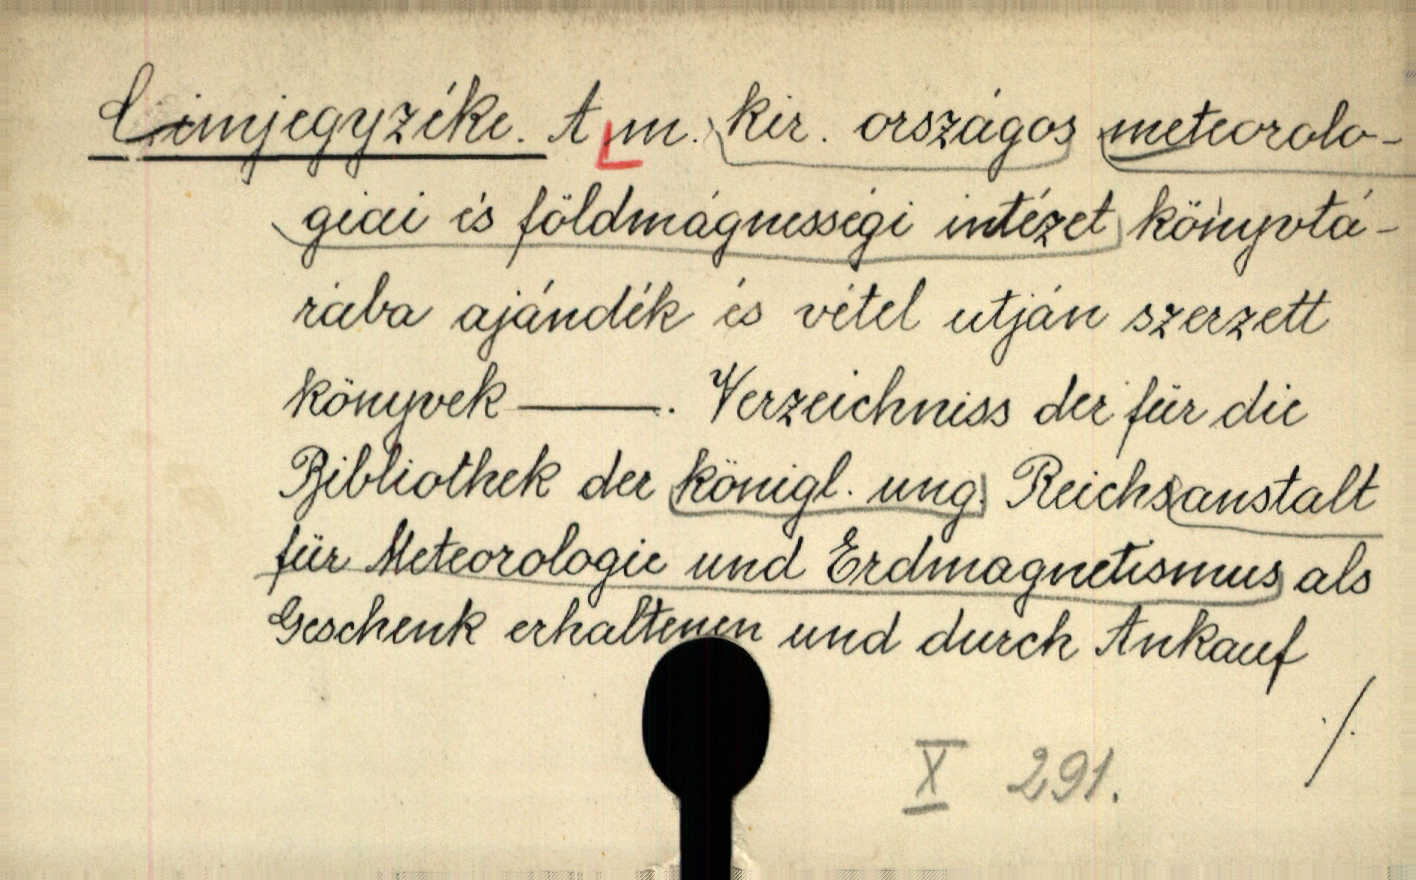 Cimjegyzéke. A m. kir. országos meteorolo-
giai és földmágnességi intézet könyvtá-
rába ajándék és vétel utján szerzett
könyvek ———. Verzeichniss der für die
Bibliothek der königl. ung. Reichsanstalt
für Meteorologie und Erdmagnetismus als
Geschenk erhaltenen und durch Ankauf
./.
X 291.